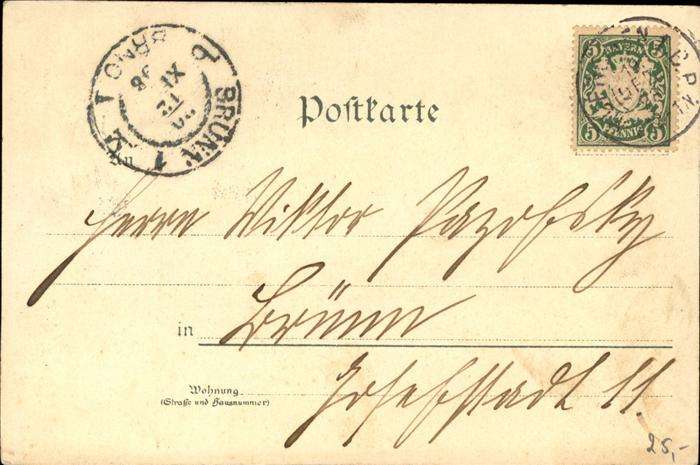 Postkarte
BAYERN
5 5
5 5
PFENNIG
BRÜNN 1
BRNO 1
XI
98
An
Herrn Viktor Pazofsky
in Brünn
Wohnung
(Straße und Hausnummer)
Josefstadt 11.
25,-